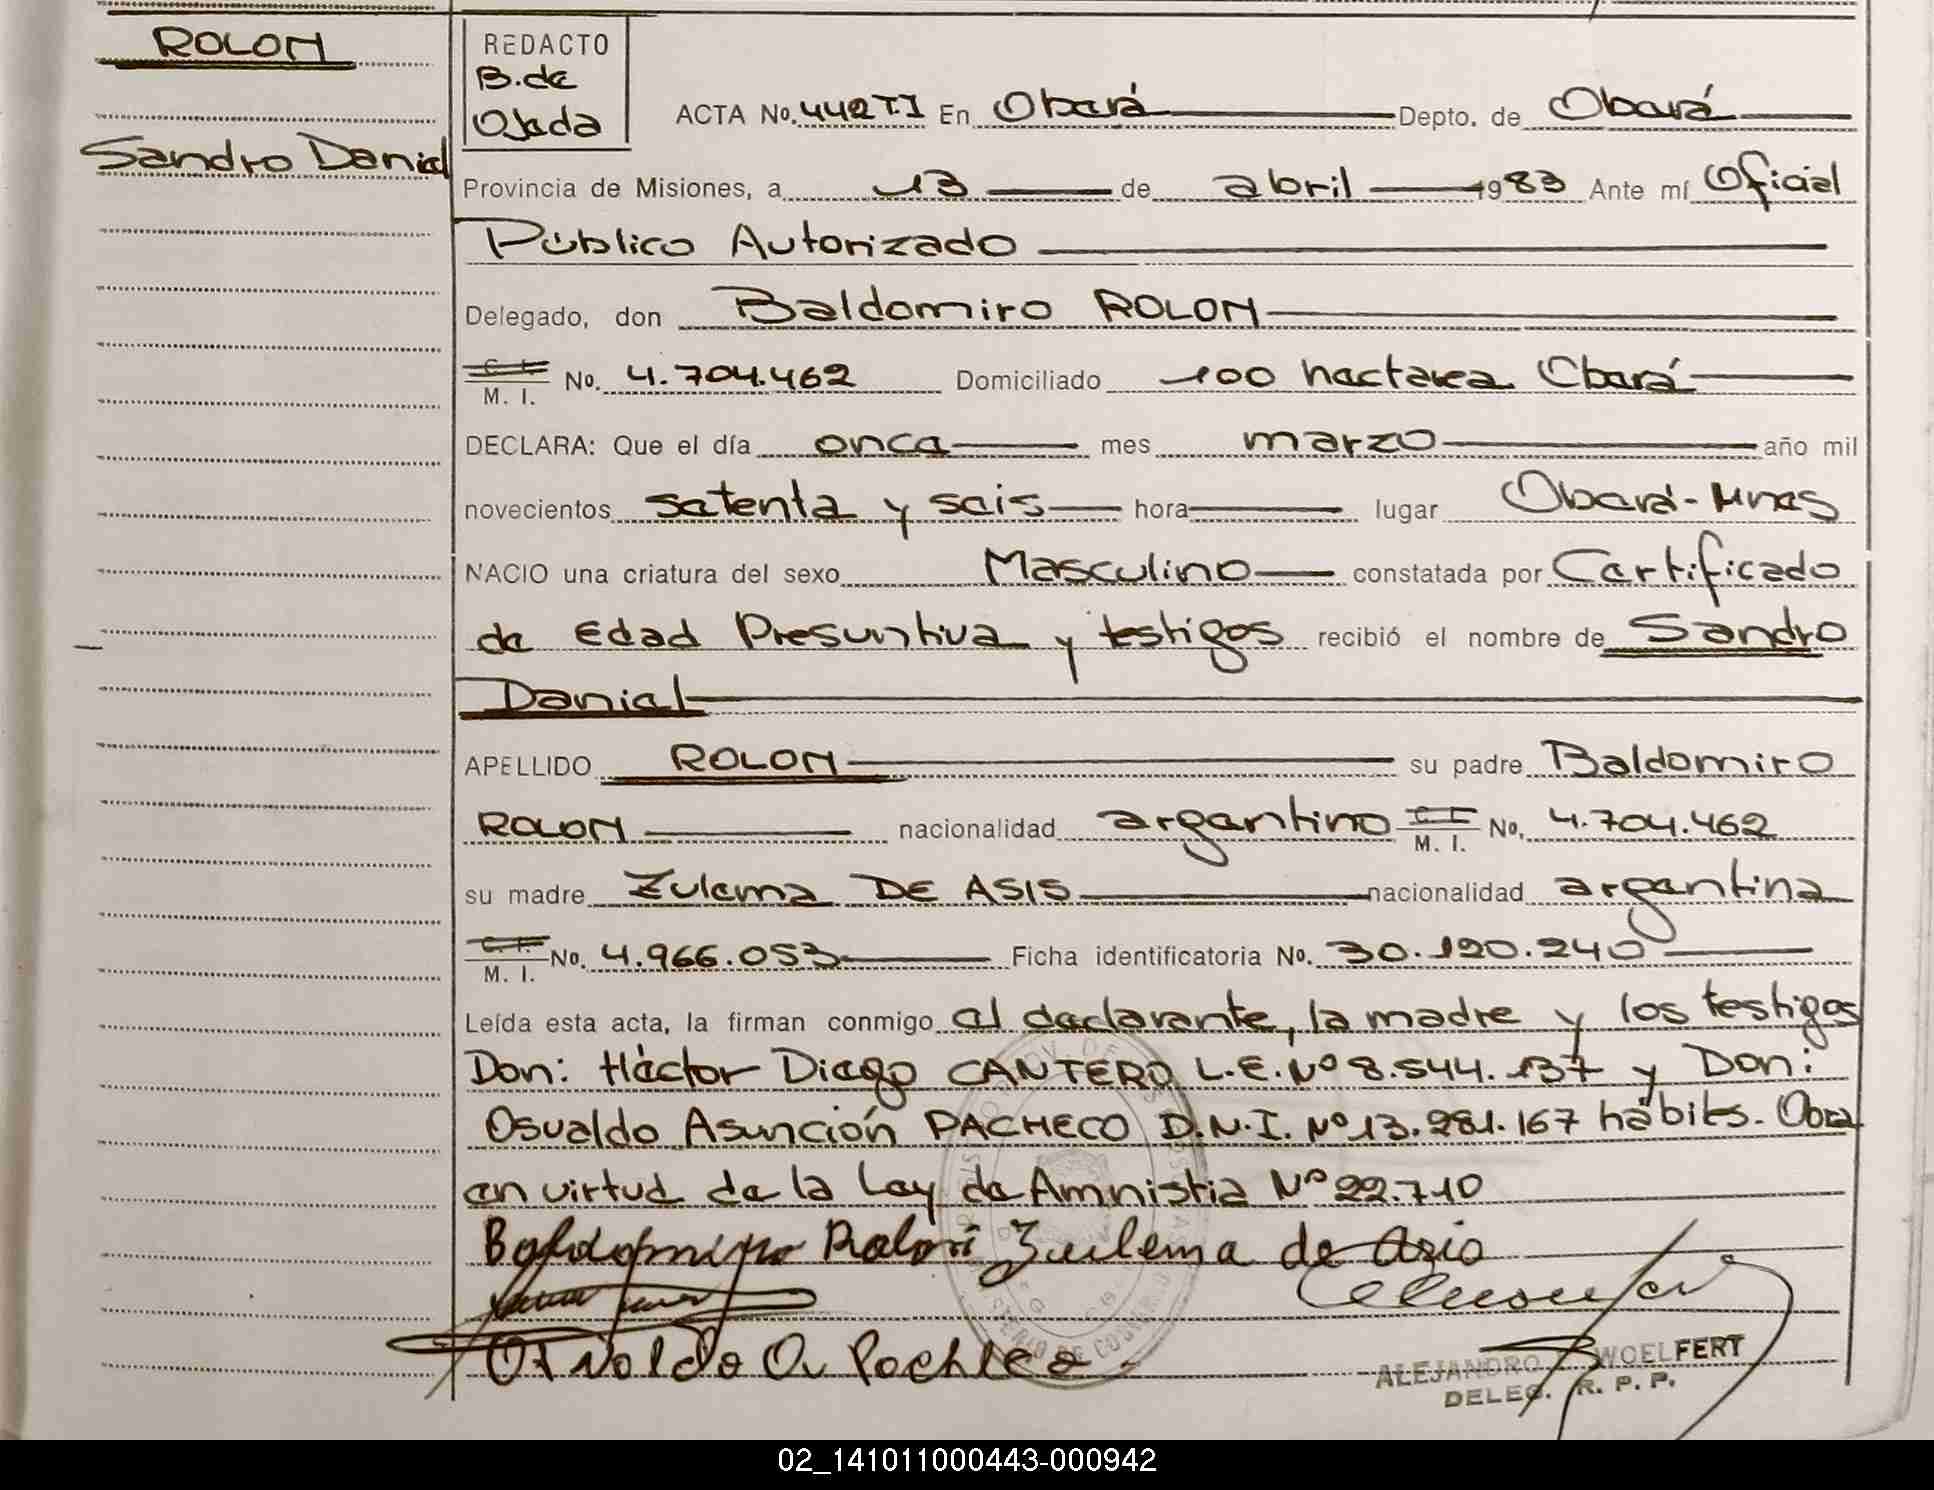 ROLON
Sandro Daniel
REDACTO
B. de
Ojeda
ACTA No. 442 TI En Oberá Depto. de Oberá
Provincia de Misiones, a 13 de abril 1983 Ante mí Oficial
Público Autorizado
Delegado, don Baldomiro ROLON
C. I. M. I. No. 4.704.462 Domiciliado 100 hectarea Oberá
DECLARA: Que el día once mes marzo año mil
novecientos setenta y seis hora lugar Oberá-Mnes
NACIO una criatura del sexo Masculino constatada por Certificado
de Edad Presuntiva y testigos recibió el nombre de Sandro
Daniel
APELLIDO ROLON su padre Baldomiro
ROLON nacionalidad argentino C. I. M. I. No. 4.704.462
su madre Zulema DE ASIS nacionalidad argentina
C. I. M. I. No. 4.966.053 Ficha identificatoria No. 30.120.240
Leída esta acta, la firman conmigo el declarante, la madre y los testigos
Don: Héctor Diego CANTERO L.E. Nº 8.544.137 y Don:
Osvaldo Asunción PACHECO D.N.I. Nº 13.281.167 hábiles. Obra
en virtud de la Ley de Amnistia Nº 22.710
Baldomiro Rolon Zulema de Asis
Osvaldo A Pacheco
ALEJANDRO WOELFERT
DELEG. R. P. P.
02_141011000443-000942